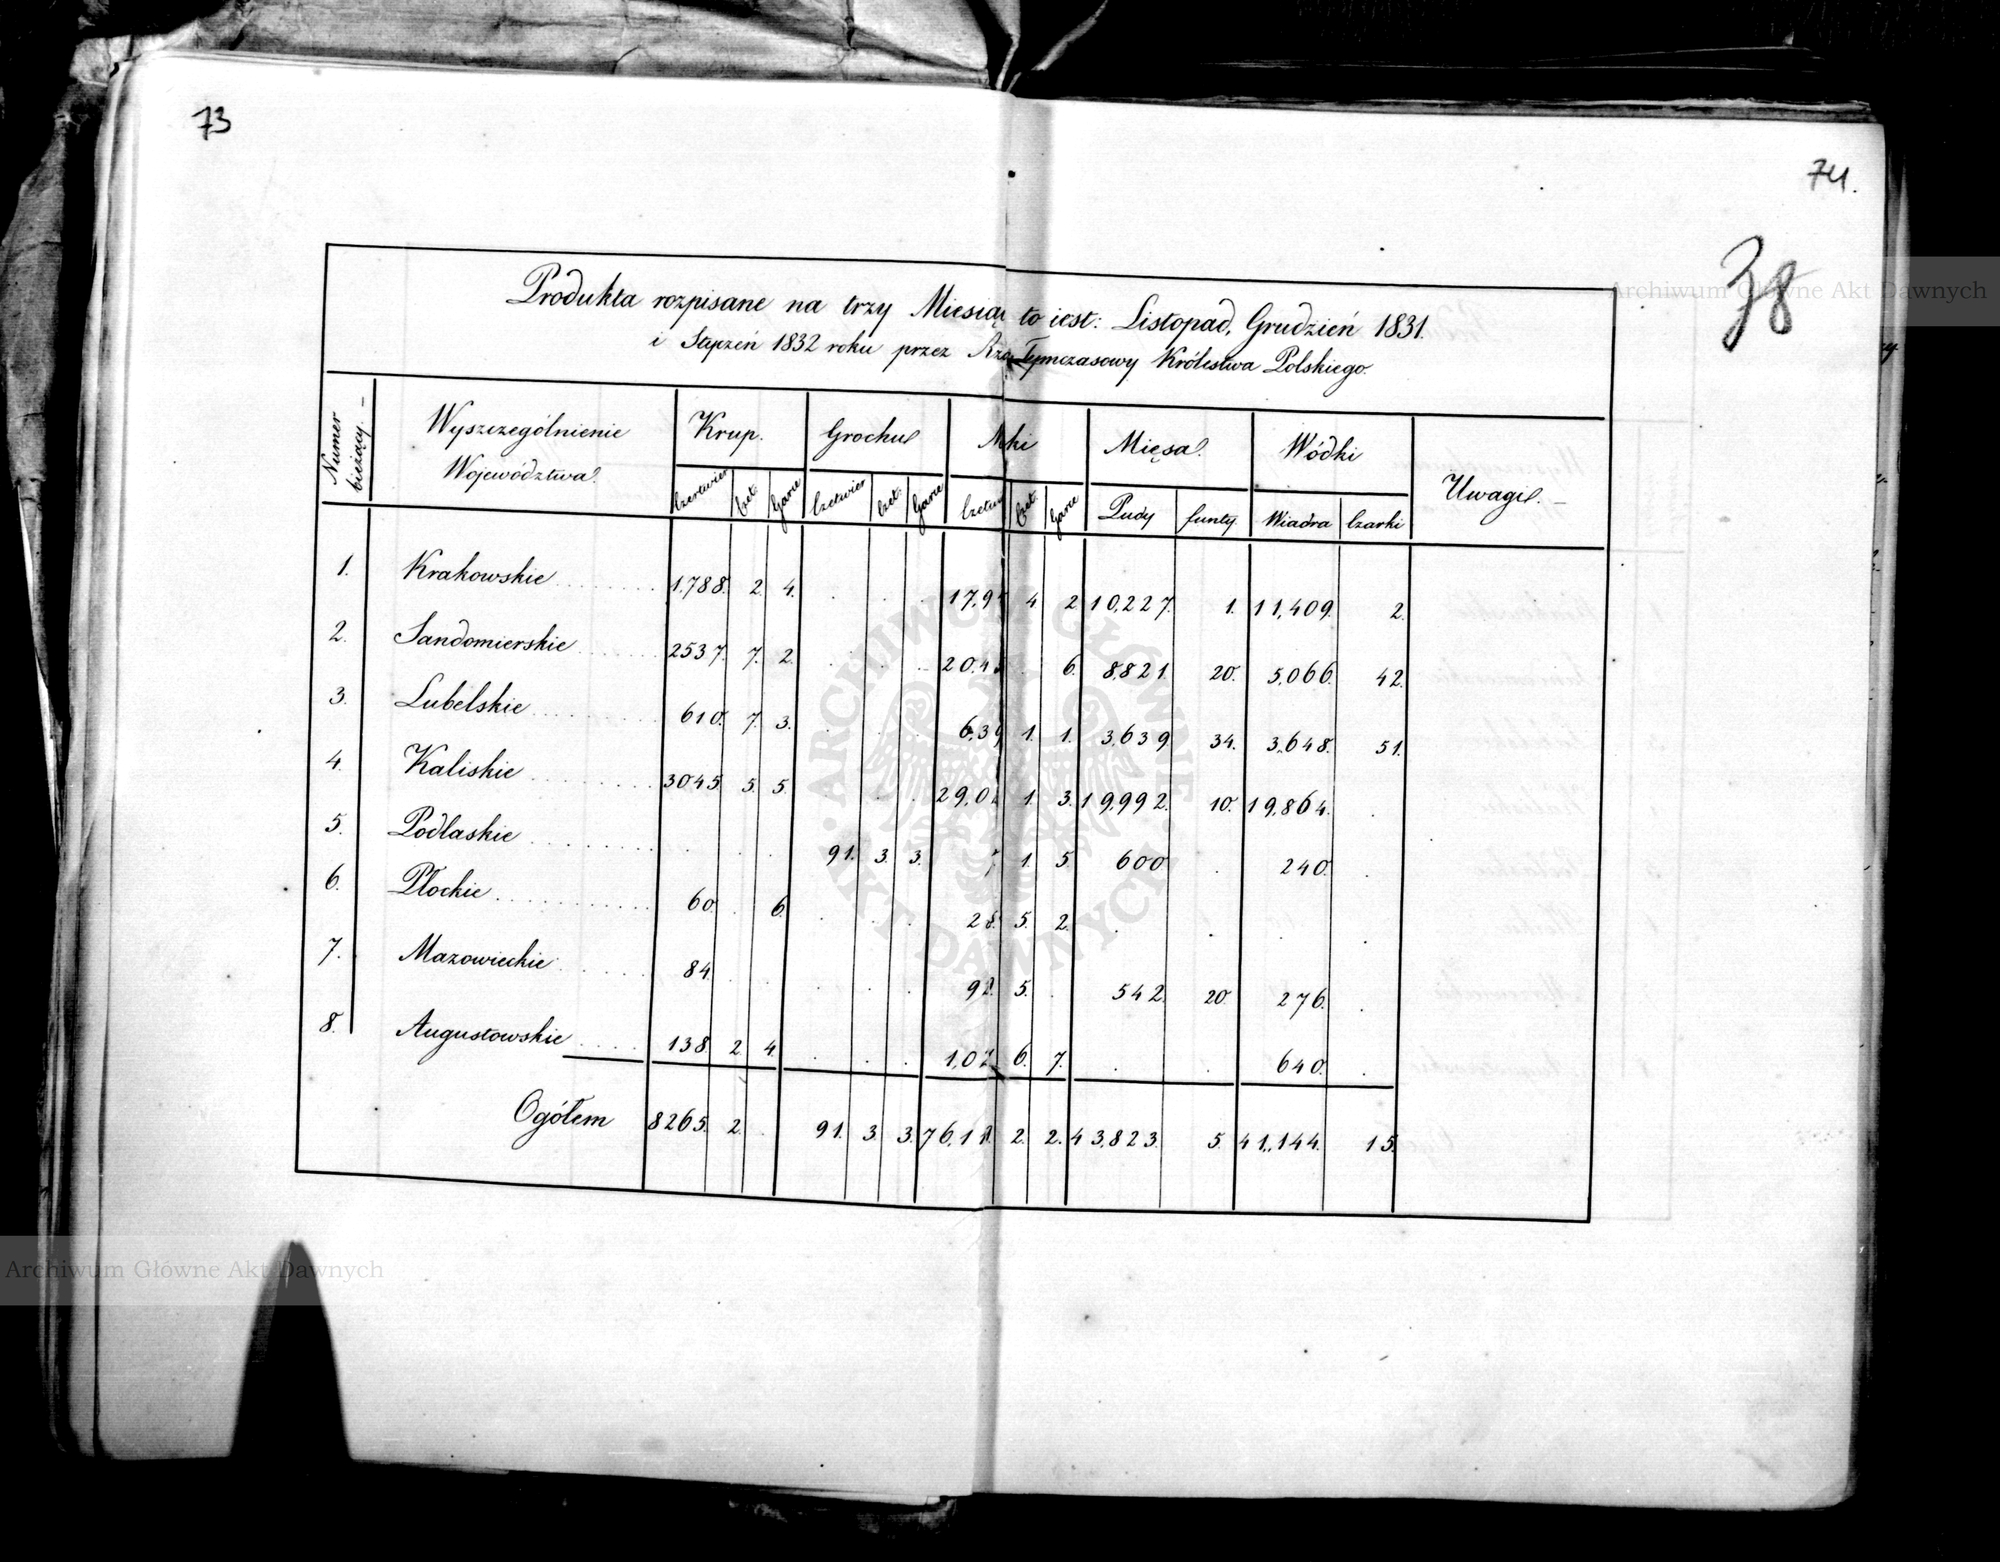 73
74.
38
Produkta rozpisane na trzy Miesią to iest: Listopad, Grudzień 1831.
i Styczeń 1832 roku przez Rzą Tymczasowy Królestwa Polskiego.
Numer bieżący. Wyszczególnienie Województwa. Krup. Grochu Mki Mięsa. Wódki Uwagi.
Czetwier Czet. Garce Czetwier Czet. Garce Czet. Garce Pudy funty. Wiadra Czarki
1. Krakowskie 1,788. 2. 4. 17,9 4 2 10,227. 1. 11,409. 2.
2. Sandomierskie 2537. 7. 2. 20,4 6. 8,821. 20. 5,066. 42.
3. Lubelskie 610. 7. 3. 6,39 1. 1. 3,639. 34. 3,648. 51.
4. Kaliskie 3045. 5. 5. 29,0 1. 3. 19,992. 10. 19,864.
5. Podlaskie 91. 3. 3. 1. 5. 600 240.
6. Płockie 60 6. 28 5. 2.
7. Mazowieckie 84 92. 5. 542. 20. 276.
8. Augustowskie 138. 2. 4. 1,0 6. 7. 640.
Ogółem 8265. 2. 91. 3. 3. 76,1 2. 2. 43,823. 5. 41,144. 15.
ARCHIWUM GŁÓWNE AKT DAWNYCH
Archiwum Główne Akt Dawnych
Archiwum Główne Akt Dawnych